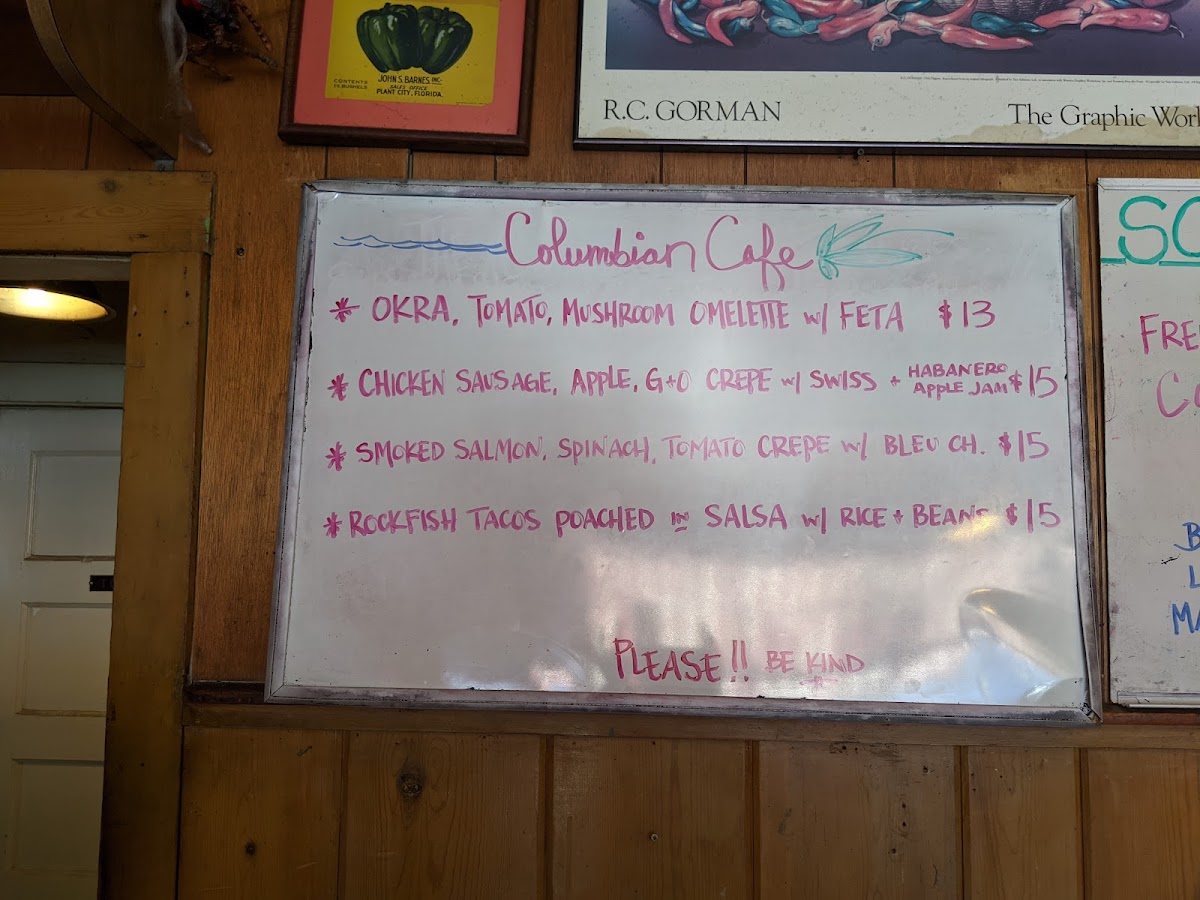 CONTENTS
1⅑ BUSHELS
JOHN S. BARNES, INC.
SALES OFFICE
PLANT CITY, FLORIDA.
R.C. GORMAN
The Graphic Work
Columbian Cafe
* OKRA, TOMATO, MUSHROOM OMELETTE w/ FETA $13
* CHICKEN SAUSAGE, APPLE, G+O CREPE w/ SWISS + HABANERO APPLE JAM $15
* SMOKED SALMON, SPINACH, TOMATO CREPE w/ BLEU CH. $15
* ROCKFISH TACOS POACHED IN SALSA w/ RICE + BEANS $15
PLEASE!! BE KIND
SO
FRE
B
L
MA